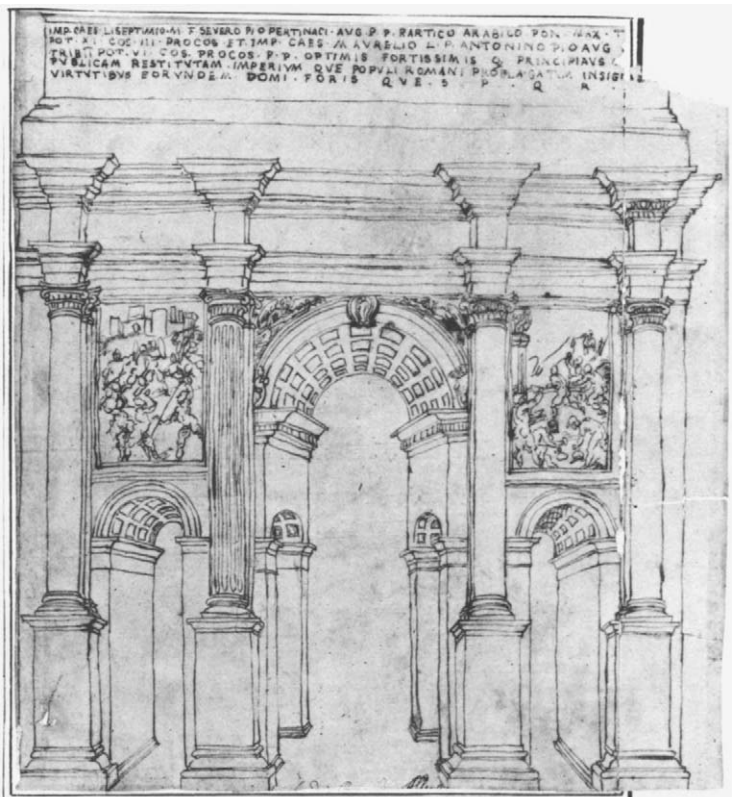 IMP. CAES. LISEPTIMIO. M. F. SEVERO PIO PERTINACI. AVG. P. P. PARTICO ARABICO PON. MAX. T
POT. XI. COS. III. PROCOS. ET. IMP. CAES. M AVRELIO L. F. ANTONINO PIO AVG
TRIB POT. VI. COS. PROCOS. P. P. OPTIMIS FORTISSIMIS Q. PRINCIPIAVS
PVBLICAM RESTITVTAM. IMPERIVM QVE POPVLI ROMANI PROPAGATVM INSIGN
VIRTVTIBVS EORVNDEM. DOMI. FORIS QVE. S. P. Q R